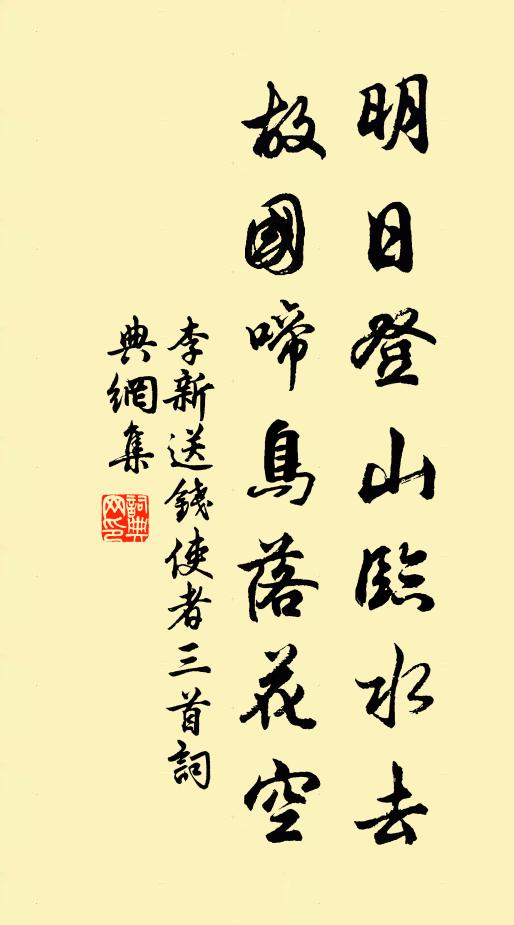 明日登山臨水去
故國啼鳥落花空
李新送錢使者三首詞
典網集
詞典網印